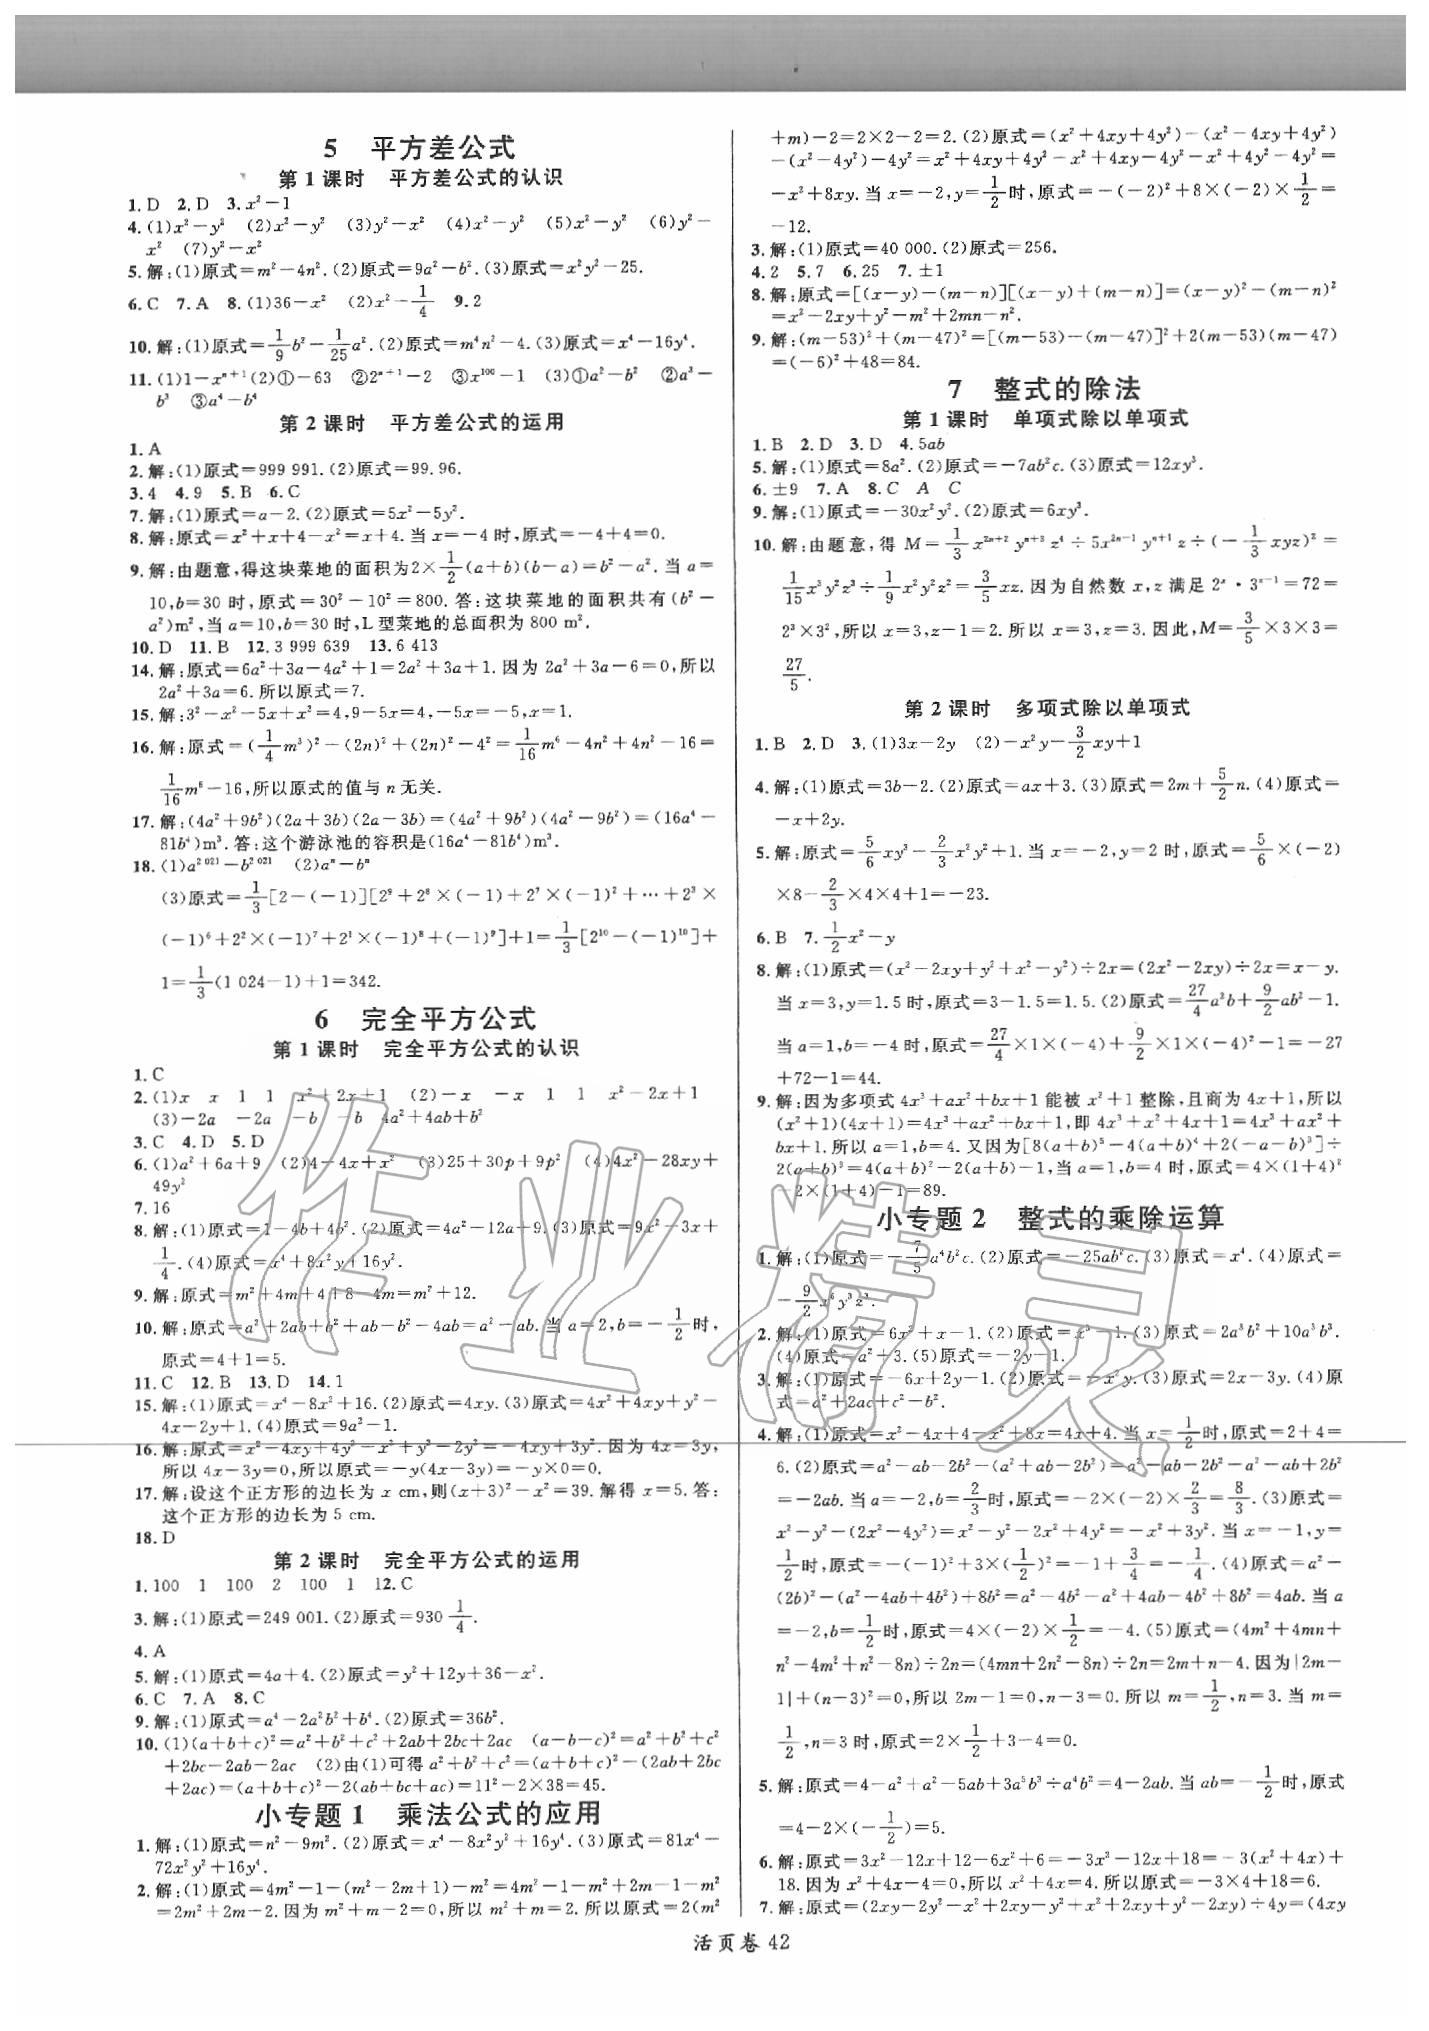 5　平方差公式
第1课时　平方差公式的认识
1. D　2. D　3. x²－1
4. (1)x²－y²　(2)x²－y²　(3)y²－x²　(4)x²－y²　(5)x²－y²　(6)y²－
x²　(7)y²－x²
5. 解:(1)原式=m²－4n².(2)原式=9a²－b².(3)原式=x²y²－25.
6. C　7. A　8. (1)36－x²　(2)x²－1/4　9. 2
10. 解:(1)原式=1/9b²－1/25a².(2)原式=m⁴n²－4.(3)原式=x⁴－16y⁴.
11. (1)1－xⁿ⁺¹(2)①－63　②2ⁿ⁺¹－2　③x¹⁰⁰－1　(3)①a²－b²　②a³－
b³　③a⁴－b⁴
第2课时　平方差公式的运用
1. A
2. 解:(1)原式=999 991.(2)原式=99.96.
3. 4　4. 9　5. B　6. C
7. 解:(1)原式=a－2.(2)原式=5x²－5y².
8. 解:原式=x²＋x＋4－x²=x＋4.当x=－4时,原式=－4＋4=0.
9. 解:由题意,得这块菜地的面积为2×1/2(a＋b)(b－a)=b²－a².当a=
10,b=30时,原式=30²－10²=800.答:这块菜地的面积共有(b²－
a²)m²,当a=10,b=30时,L型菜地的总面积为800 m².
10. D　11. B　12. 3 999 639　13. 6 413
14. 解:原式=6a²＋3a－4a²＋1=2a²＋3a＋1.因为2a²＋3a－6=0,所以
2a²＋3a=6.所以原式=7.
15. 解:3²－x²－5x＋x²=4,9－5x=4,－5x=－5,x=1.
16. 解:原式=(1/4m³)²－(2n)²＋(2n)²－4²=1/16m⁶－4n²＋4n²－16=
1/16m⁶－16,所以原式的值与n无关.
17. 解:(4a²＋9b²)(2a＋3b)(2a－3b)=(4a²＋9b²)(4a²－9b²)=(16a⁴－
81b⁴)m³.答:这个游泳池的容积是(16a⁴－81b⁴)m³.
18. (1)a²⁰²¹－b²⁰²¹　(2)aⁿ－bⁿ
(3)原式=1/3[2－(－1)][2⁹＋2⁸×(－1)＋2⁷×(－1)²＋…＋2³×
(－1)⁶＋2²×(－1)⁷＋2¹×(－1)⁸＋(－1)⁹]＋1=1/3[2¹⁰－(－1)¹⁰]＋
1=1/3(1 024－1)＋1=342.
6　完全平方公式
第1课时　完全平方公式的认识
1. C
2. (1)x　x　1　1　x²＋2x＋1　(2)－x　－x　1　1　x²－2x＋1
(3)－2a　－2a　－b　－b　4a²＋4ab＋b²
3. C　4. D　5. D
6. (1)a²＋6a＋9　(2)4－4x＋x²　(3)25＋30p＋9p²　(4)4x²－28xy＋
49y²
7. 16
8. 解:(1)原式=1－4b＋4b².(2)原式=4a²－12a＋9.(3)原式=9x²－3x＋
1/4.(4)原式=x⁴＋8x²y＋16y².
9. 解:原式=m²＋4m＋4＋8－4m=m²＋12.
10. 解:原式=a²＋2ab＋b²＋ab－b²－4ab=a²－ab.当a=2,b=－1/2时,
原式=4＋1=5.
11. C　12. B　13. D　14. 1
15. 解:(1)原式=x⁴－8x²＋16.(2)原式=4xy.(3)原式=4x²＋4xy＋y²－
4x－2y＋1.(4)原式=9a²－1.
16. 解:原式=x²－4xy＋4y²－x²＋y²－2y²=－4xy＋3y².因为4x=3y,
所以4x－3y=0,所以原式=－y(4x－3y)=－y×0=0.
17. 解:设这个正方形的边长为x cm,则(x＋3)²－x²=39.解得x=5.答:
这个正方形的边长为5 cm.
18. D
第2课时　完全平方公式的运用
1. 100　1　100　2　100　1　12. C
3. 解:(1)原式=249 001.(2)原式=930 1/4.
4. A
5. 解:(1)原式=4a＋4.(2)原式=y²＋12y＋36－x².
6. C　7. A　8. C
9. 解:(1)原式=a⁴－2a²b²＋b⁴.(2)原式=36b².
10. (1)(a＋b＋c)²=a²＋b²＋c²＋2ab＋2bc＋2ac　(a－b－c)²=a²＋b²＋c²
＋2bc－2ab－2ac　(2)由(1)可得a²＋b²＋c²=(a＋b＋c)²－(2ab＋2bc
＋2ac)=(a＋b＋c)²－2(ab＋bc＋ac)=11²－2×38=45.
小专题1　乘法公式的应用
1. 解:(1)原式=n²－9m².(2)原式=x⁴－8x²y²＋16y⁴.(3)原式=81x⁴－
72x²y²＋16y⁴.
2. 解:(1)原式=4m²－1－(m²－2m＋1)－m²=4m²－1－m²＋2m－1－m²
=2m²＋2m－2.因为m²＋m－2=0,所以m²＋m=2.所以原式=2(m²
＋m)－2=2×2－2=2.(2)原式=(x²＋4xy＋4y²)－(x²－4xy＋4y²)
－(x²－4y²)－4y²=x²＋4xy＋4y²－x²＋4xy－4y²－x²＋4y²－4y²=
－x²＋8xy.当x=－2,y=1/2时,原式=－(－2)²＋8×(－2)×1/2=
－12.
3. 解:(1)原式=40 000.(2)原式=256.
4. 2　5. 7　6. 25　7. ±1
8. 解:原式=[(x－y)－(m－n)][(x－y)＋(m－n)]=(x－y)²－(m－n)²
=x²－2xy＋y²－m²＋2mn－n².
9. 解:(m－53)²＋(m－47)²=[(m－53)－(m－47)]²＋2(m－53)(m－47)
=(－6)²＋48=84.
7　整式的除法
第1课时　单项式除以单项式
1. B　2. D　3. D　4. 5ab
5. 解:(1)原式=8a².(2)原式=－7ab²c.(3)原式=12xy³.
6. ±9　7. A　8. C　A　C
9. 解:(1)原式=－30x²y².(2)原式=6xy³.
10. 解:由题意,得M=1/3x²ⁿ⁺²yⁿ⁺³z⁴÷5x²ⁿ⁻¹yⁿ⁺¹z÷(－1/3xyz)²=
1/15x³y²z³÷1/9x²y²z²=3/5xz.因为自然数x,z满足2ˣ·3ᶻ⁻¹=72=
2³×3²,所以x=3,z－1=2.所以x=3,z=3.因此,M=3/5×3×3=
27/5.
第2课时　多项式除以单项式
1. B　2. D　3. (1)3x－2y　(2)－x²y－3/2xy＋1
4. 解:(1)原式=3b－2.(2)原式=ax＋3.(3)原式=2m＋5/2n.(4)原式=
－x＋2y.
5. 解:原式=5/6xy³－2/3x²y²＋1.当x=－2,y=2时,原式=5/6×(－2)
×8－2/3×4×4＋1=－23.
6. B　7. 1/2x²－y
8. 解:(1)原式=(x²－2xy＋y²＋x²－y²)÷2x=(2x²－2xy)÷2x=x－y.
当x=3,y=1.5时,原式=3－1.5=1.5.(2)原式=27/4a²b＋9/2ab²－1.
当a=1,b=－4时,原式=27/4×1×(－4)＋9/2×1×(－4)²－1=－27
＋72－1=44.
9. 解:因为多项式4x³＋ax²＋bx＋1能被x²＋1整除,且商为4x＋1,所以
(x²＋1)(4x＋1)=4x³＋ax²＋bx＋1,即4x³＋x²＋4x＋1=4x³＋ax²＋
bx＋1.所以a=1,b=4.又因为[8(a＋b)⁵－4(a＋b)⁴＋2(－a－b)³]÷
2(a＋b)³=4(a＋b)²－2(a＋b)－1,当a=1,b=4时,原式=4×(1＋4)²
－2×(1＋4)－1=89.
小专题2　整式的乘除运算
1. 解:(1)原式=－7/5a⁴b²c.(2)原式=－25ab²c.(3)原式=x⁴.(4)原式=
－9/2x⁶y³z³.
2. 解:(1)原式=6x²＋x－1.(2)原式=x³－1.(3)原式=2a³b²＋10a³b³.
(4)原式=a²＋3.(5)原式=－2y－1.
3. 解:(1)原式=－6x＋2y－1.(2)原式=－x²y.(3)原式=2x－3y.(4)原
式=a²＋2ac＋c²－b².
4. 解:(1)原式=x²－4x＋4－x²＋8x=4x＋4.当x=1/2时,原式=2＋4=
6.(2)原式=a²－ab－2b²－(a²＋ab－2b²)=a²－ab－2b²－a²－ab＋2b²
=－2ab.当a=－2,b=2/3时,原式=－2×(－2)×2/3=8/3.(3)原式=
x²－y²－(2x²－4y²)=x²－y²－2x²＋4y²=－x²＋3y².当x=－1,y=
1/2时,原式=－(－1)²＋3×(1/2)²=－1＋3/4=－1/4.(4)原式=a²－
(2b)²－(a²－4ab＋4b²)＋8b²=a²－4b²－a²＋4ab－4b²＋8b²=4ab.当a
=－2,b=1/2时,原式=4×(－2)×1/2=－4.(5)原式=(4m²＋4mn＋
n²－4m²＋n²－8n)÷2n=(4mn＋2n²－8n)÷2n=2m＋n－4.因为|2m－
1|＋(n－3)²=0,所以2m－1=0,n－3=0.所以m=1/2,n=3.当m=
1/2,n=3时,原式=2×1/2＋3－4=0.
5. 解:原式=4－a²＋a²－5ab＋3a⁵b³÷a⁴b²=4－2ab.当ab=－1/2时,原式
=4－2×(－1/2)=5.
6. 解:原式=3x²－12x＋12－6x²＋6=－3x²－12x＋18=－3(x²＋4x)＋
18.因为x²＋4x－4=0,所以x²＋4x=4.所以原式=－3×4＋18=6.
7. 解:原式=(2xy－2y²－x²＋2xy－y²＋x²＋2xy＋y²－2xy)÷4y=(4xy
活页卷 42
作业精灵